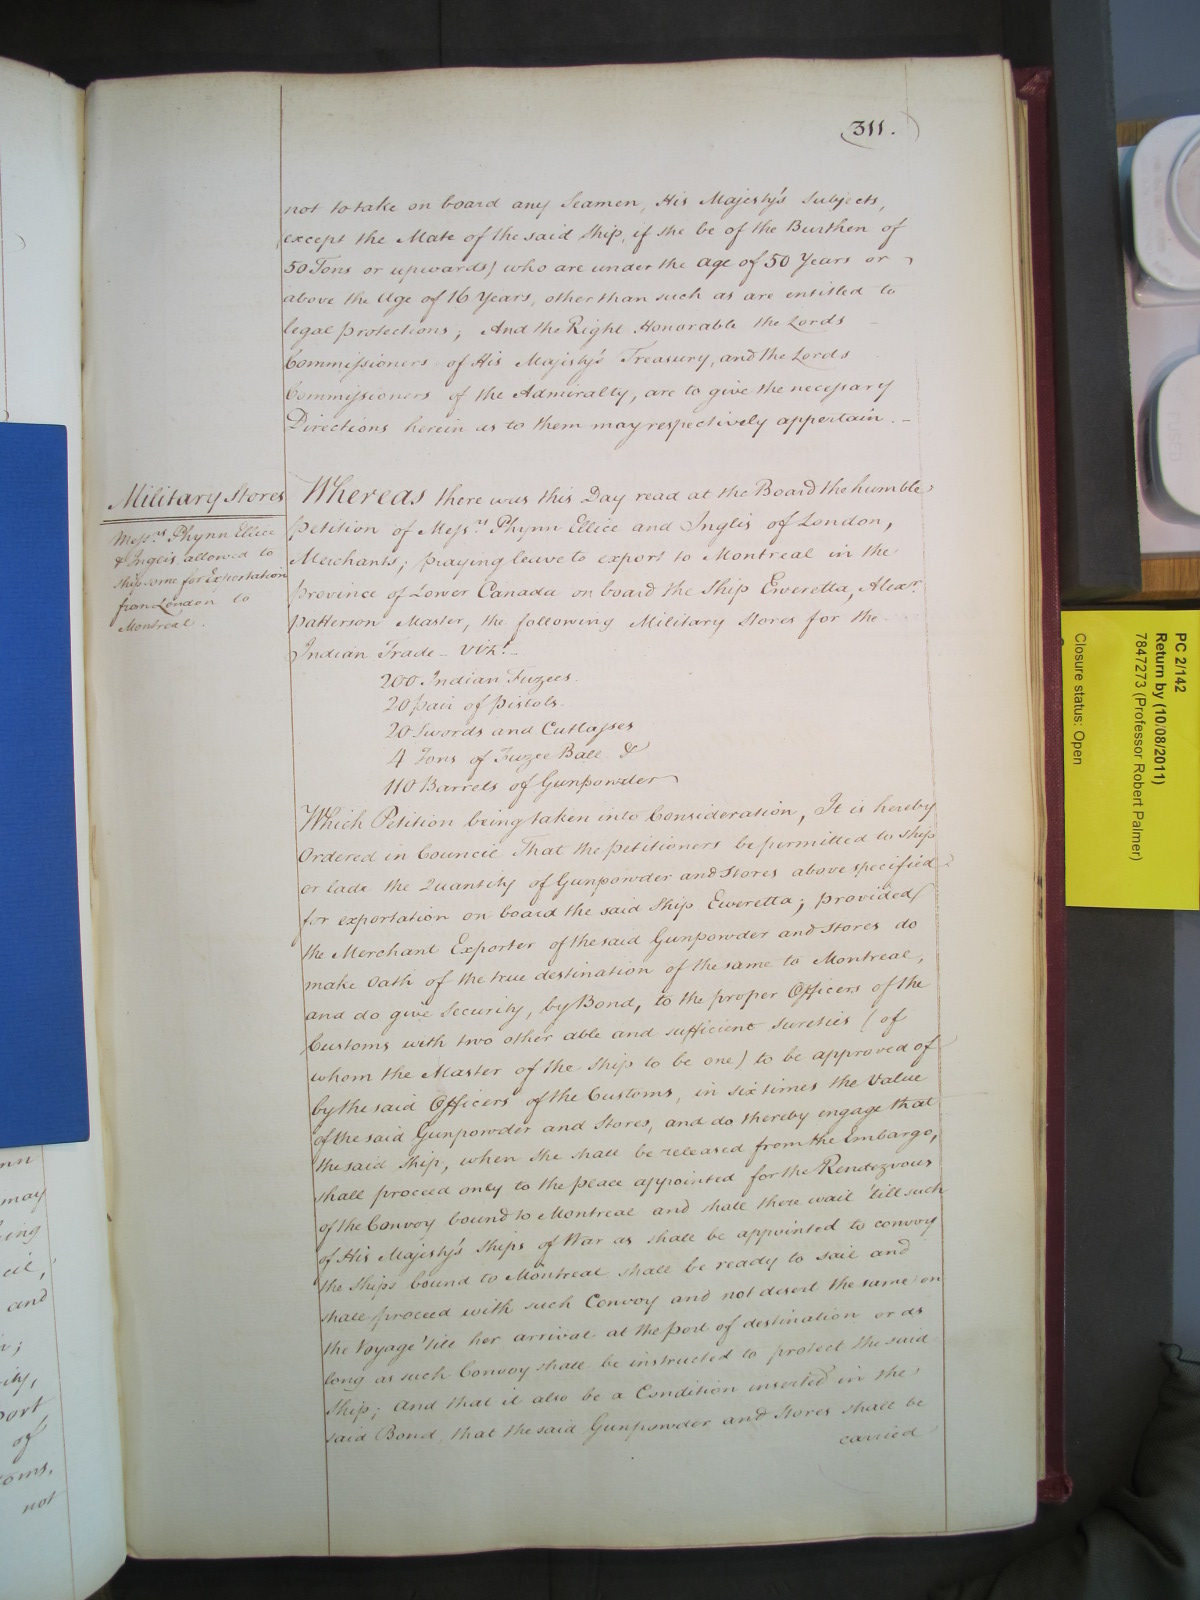 311.
not to take on board any Seamen, His Majesty's Subjects,
(except the Mate of the said Ship, if she be of the Burthen of
50 Tons or upwards) who are under the age of 50 Years or
above the Age of 16 Years, other than such as are entitled to
legal protections; And the Right Honorable the Lords
Commissioners of His Majesty's Treasury, and the Lords
Commissioners of the Admiralty, are to give the necessary
Directions herein as to them may respectively appertain.
Military Stores
Mess.rs Phynn Ellice
& Inglis allowed to
ship some for Exportation
from London to
Montreal.
Whereas there was this Day read at the Board the humble
Petition of Mess.rs Phynn Ellice and Inglis of London,
Merchants; praying leave to export to Montreal in the
Province of Lower Canada on board the Ship Eweretta, Alexr.
Patterson Master, the following Military Stores for the
Indian Trade - Vizt. -
200 Indian Fuzees.
20 pair of Pistols.
20 Swords and Cutlasses
4 Tons of Fuzee Ball &
110 Barrels of Gunpowder
Which Petition being taken into Consideration, It is hereby
Ordered in Council That the petitioners be permitted to ship
or lade the Quantity of Gunpowder and Stores above specified
for exportation on board the said Ship Eweretta; provided
the Merchant Exporter of the said Gunpowder and Stores do
make Oath of the true destination of the same to Montreal,
and do give Security, by Bond, to the proper Officers of the
Customs with two other able and sufficient Sureties (of
whom the Master of the Ship to be one) to be approved of
by the said Officers of the Customs, in six times the Value
of the said Gunpowder and Stores, and do thereby engage that
the said Ship, when she shall be released from the Embargo,
shall proceed only to the place appointed for the Rendezvous
of the Convoy bound to Montreal and shall there wait 'till such
of His Majesty's Ships of War as shall be appointed to convoy
the Ships bound to Montreal shall be ready to sail and
shall proceed with such Convoy and not desert the same on
the Voyage 'till her arrival at the port of destination or as
long as such Convoy shall be instructed to protect the said
Ship; And that it also be a Condition inserted in the
said Bond, that the said Gunpowder and Stores shall be
carried
may
cil,
and
ity,
port
of
oms,
not
PC 2/142
Return by (10/08/2011)
7847273 (Professor Robert Palmer)
Closure status: Open